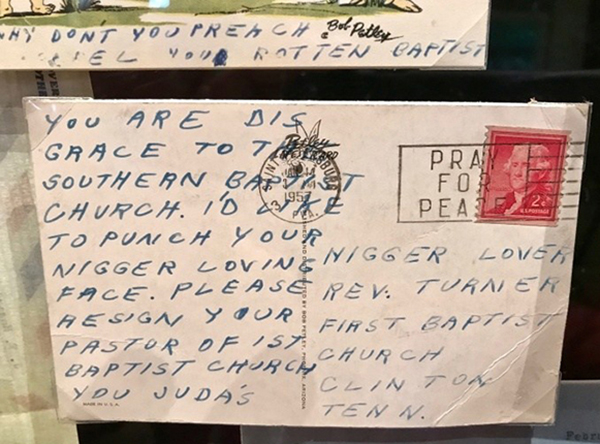 WHY DONT YOU PREACH
Bob Petley
ROTTEN BAPTIST
YOU ARE DIS
GRACE TO T
SOUTHERN BAPTIST
CHURCH. I'D LIKE
TO PUNCH YOUR
NIGGER LOVING
FACE. PLEASE
RESIGN YOUR
PASTOR OF 1ST
BAPTIST CHURCH
YOU JUDA'S
MADE IN U.S.A.
Petley
SAINT PETERSBURG
1957
FLA.
PRAY
FOR
PEACE
2¢
U.S. POSTAGE
NIGGER LOVER
REV. TURNER
FIRST BAPTIST
CHURCH
CLINTON
TENN.